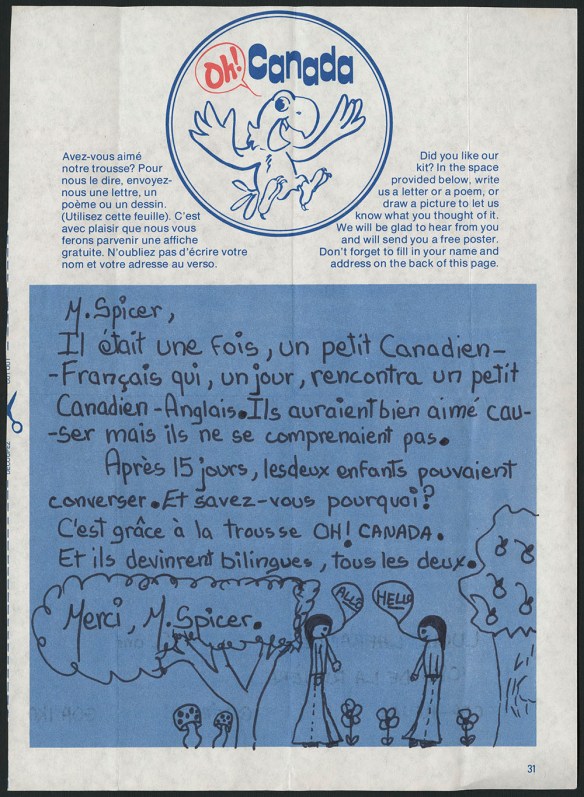 Oh! Canada
Avez-vous aimé
notre trousse? Pour
nous le dire, envoyez-
nous une lettre, un
poème ou un dessin.
(Utilisez cette feuille). C'est
avec plaisir que nous vous
ferons parvenir une affiche
gratuite. N'oubliez pas d'écrire votre
nom et votre adresse au verso.
Did you like our
kit? In the space
provided below, write
us a letter or a poem, or
draw a picture to let us
know what you thought of it.
We will be glad to hear from you
and will send you a free poster.
Don't forget to fill in your name and
address on the back of this page.
M. Spicer,
Il était une fois, un petit Canadien-
-Français qui, un jour, rencontra un petit
Canadien-Anglais. Ils auraient bien aimé cau-
-ser mais ils ne se comprenaient pas.
Après 15 jours, les deux enfants pouvaient
converser. Et savez-vous pourquoi?
C'est grâce à la trousse OH! CANADA.
Et ils devinrent bilingues, tous les deux.
Merci, M. Spicer.
ALLÔ
HELLO
31